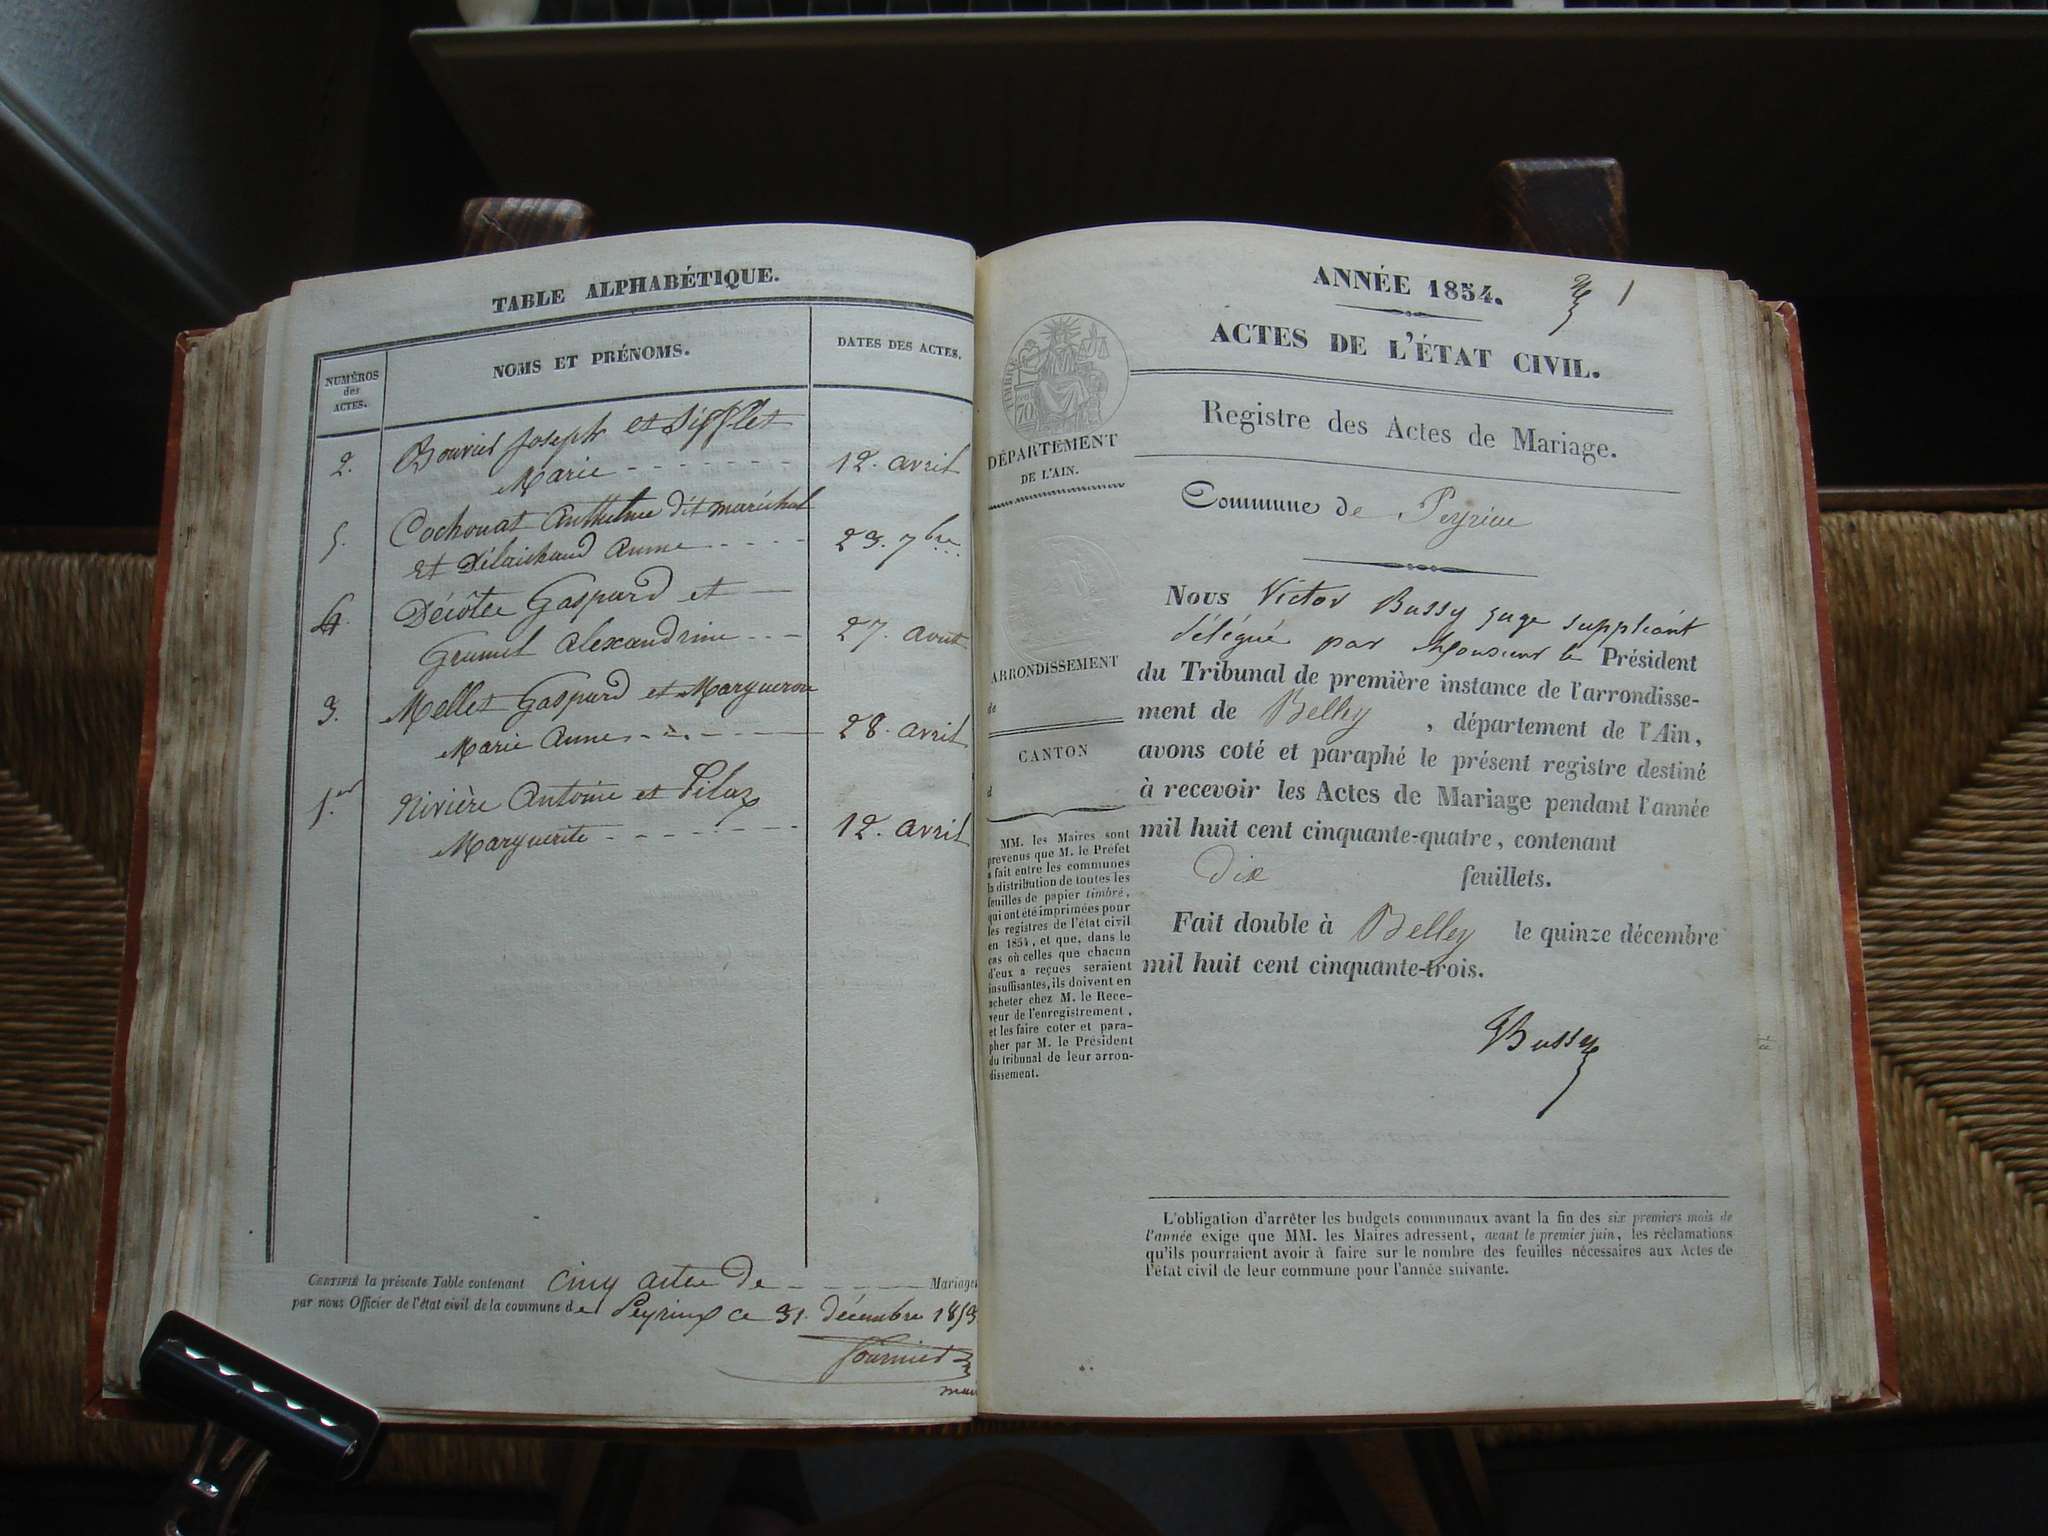 TABLE ALPHABÉTIQUE.
NUMÉROS
des
ACTES.
NOMS ET PRÉNOMS.
DATES DES ACTES.
2. Bouvier Joseph et Sifflet
Marie 12. avril
5. Cochonat Anthelme dit maréchal
et Délaichaud Anne 23. 7bre
4. Gaspard et
Grumet Alexandrine 27. Aout
3. Mellet Gaspard et Margueron
Marie Anne 28. avril
1.er Rivière Antoine et Pilaz
Marguerite 12. avril
CERTIFIÉ la présente Table contenant cinq actes de Mariages
par nous Officier de l'état civil de la commune de Peyrieux ce 31. décembre 1853
Fournier
ANNÉE 1854.
1
ACTES DE L'ÉTAT CIVIL.
Registre des Actes de Mariage.
TIMBRE
70
DÉPARTEMENT
DE L'AIN.
Commune de Peyrieu
ARRONDISSEMENT
de
CANTON
d
MM. les Maires sont
prévenus que M. le Préfet
a fait entre les communes
la distribution de toutes les
feuilles de papier timbré,
qui ont été imprimées pour
les registres de l'état civil
en 1854, et que, dans le
cas où celles que chacun
d'eux a reçues seraient
insuffisantes, ils doivent en
acheter chez M. le Rece-
veur de l'enregistrement,
et les faire coter et para-
pher par M. le Président
du tribunal de leur arron-
dissement.
Nous Victor Bussy juge suppléant
délégué par Monsieur le Président
du Tribunal de première instance de l'arrondisse-
ment de Belley, département de l'Ain,
avons coté et paraphé le présent registre destiné
à recevoir les Actes de Mariage pendant l'année
mil huit cent cinquante-quatre, contenant
Dix feuillets.
Fait double à Belley le quinze décembre
mil huit cent cinquante-trois.
VBussy
L'obligation d'arrêter les budgets communaux avant la fin des six premiers mois de
l'année exige que MM. les Maires adressent, avant le premier juin, les réclamations
qu'ils pourraient avoir à faire sur le nombre des feuilles nécessaires aux Actes de
l'état civil de leur commune pour l'année suivante.